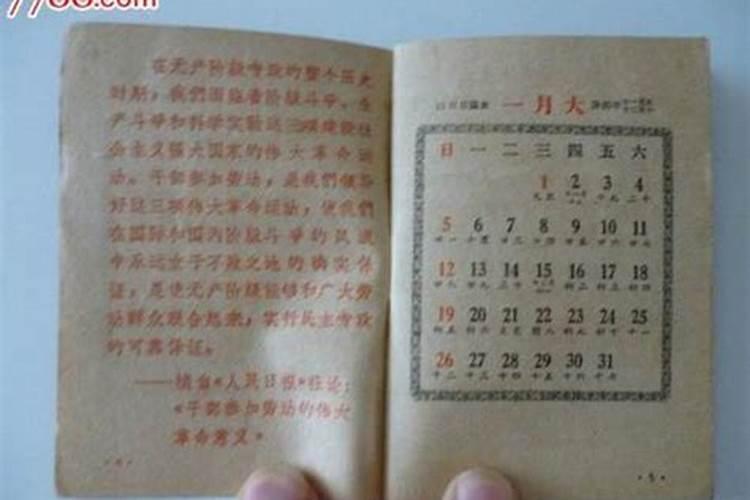 在无产阶级专政的整个历史
时期，我們面临着阶級斗爭、生
产斗爭和科学实驗这三項建設社
会主义强大国家的伟大革命运
动。干部参加劳动，是我們領导
好这三項伟大革命运动，使我們
在国际和国內阶級斗爭的风浪
中永远立于不敗之地的确实保
证，是使无产阶級能够和广大劳
动群众联合起来，实行民主专政
的可靠保证。
——摘自《人民日报》社论：
《干部参加劳动的伟大
革命意义》
一月大
日 一 二 三 四 五 六
1 2 3 4
十九 二十
5 6 7 8 9 10 11
廿一 廿三 廿四 廿五 廿六 廿七
12 13 14 15 16 17 18
廿八 廿九 三十 初二 初三 初四
19 20 21 22 23 24 25
初五 初六 初八 初九 初十 十一
26 27 28 29 30 31
十二 十三 十四 十五 十六 十七
·4·
·5·